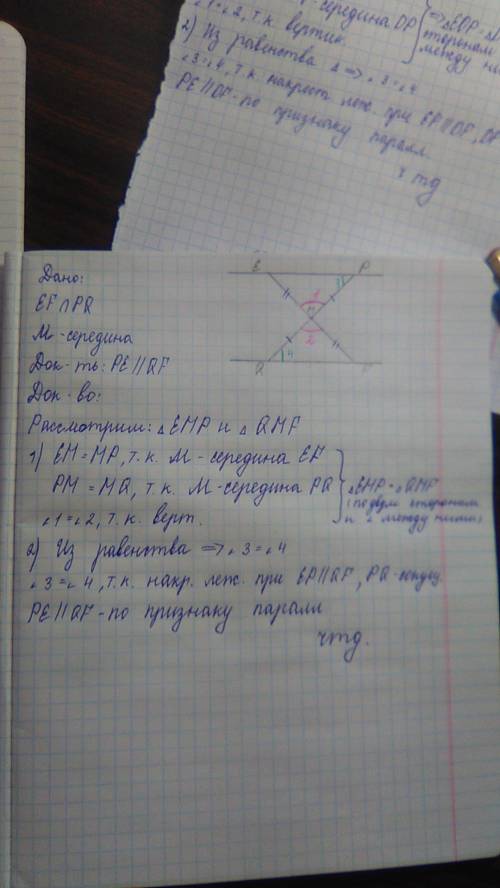 середина DP
∠1=∠2, т.к. вертик.
2) Из равенства △ => ∠3=∠4
∠3=∠4, т.к. накрест леж. при EP || DF,
PE || DF - по признаку паралл.
чтд
Дано:
EF ∩ PQ
M - середина
Док-ть: PE || QF
Док-во:
Рассмотрим: △ EMP и △ QMF
1) EM = MP, т.к. M - середина EF
PM = MQ, т.к. M - середина PQ
∠1=∠2, т.к. верт.
△EMP = △QMF
(по двум сторонам
и ∠ между ними)
2) Из равенства => ∠3=∠4
∠3=∠4, т.к. накр. леж. при EP || QF, PQ-секущ.
PE || QF - по признаку паралл
чтд.
E
P
3
1
M
2
4
Q
F